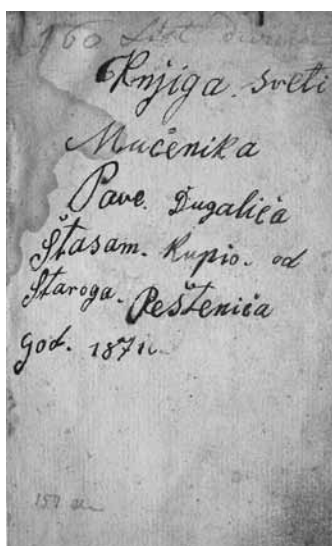 160
Knjiga. sveti
Mučenika
Pave. Dugalića
Štasam. Kupio. od
Staroga. Peštenića
god. 1871